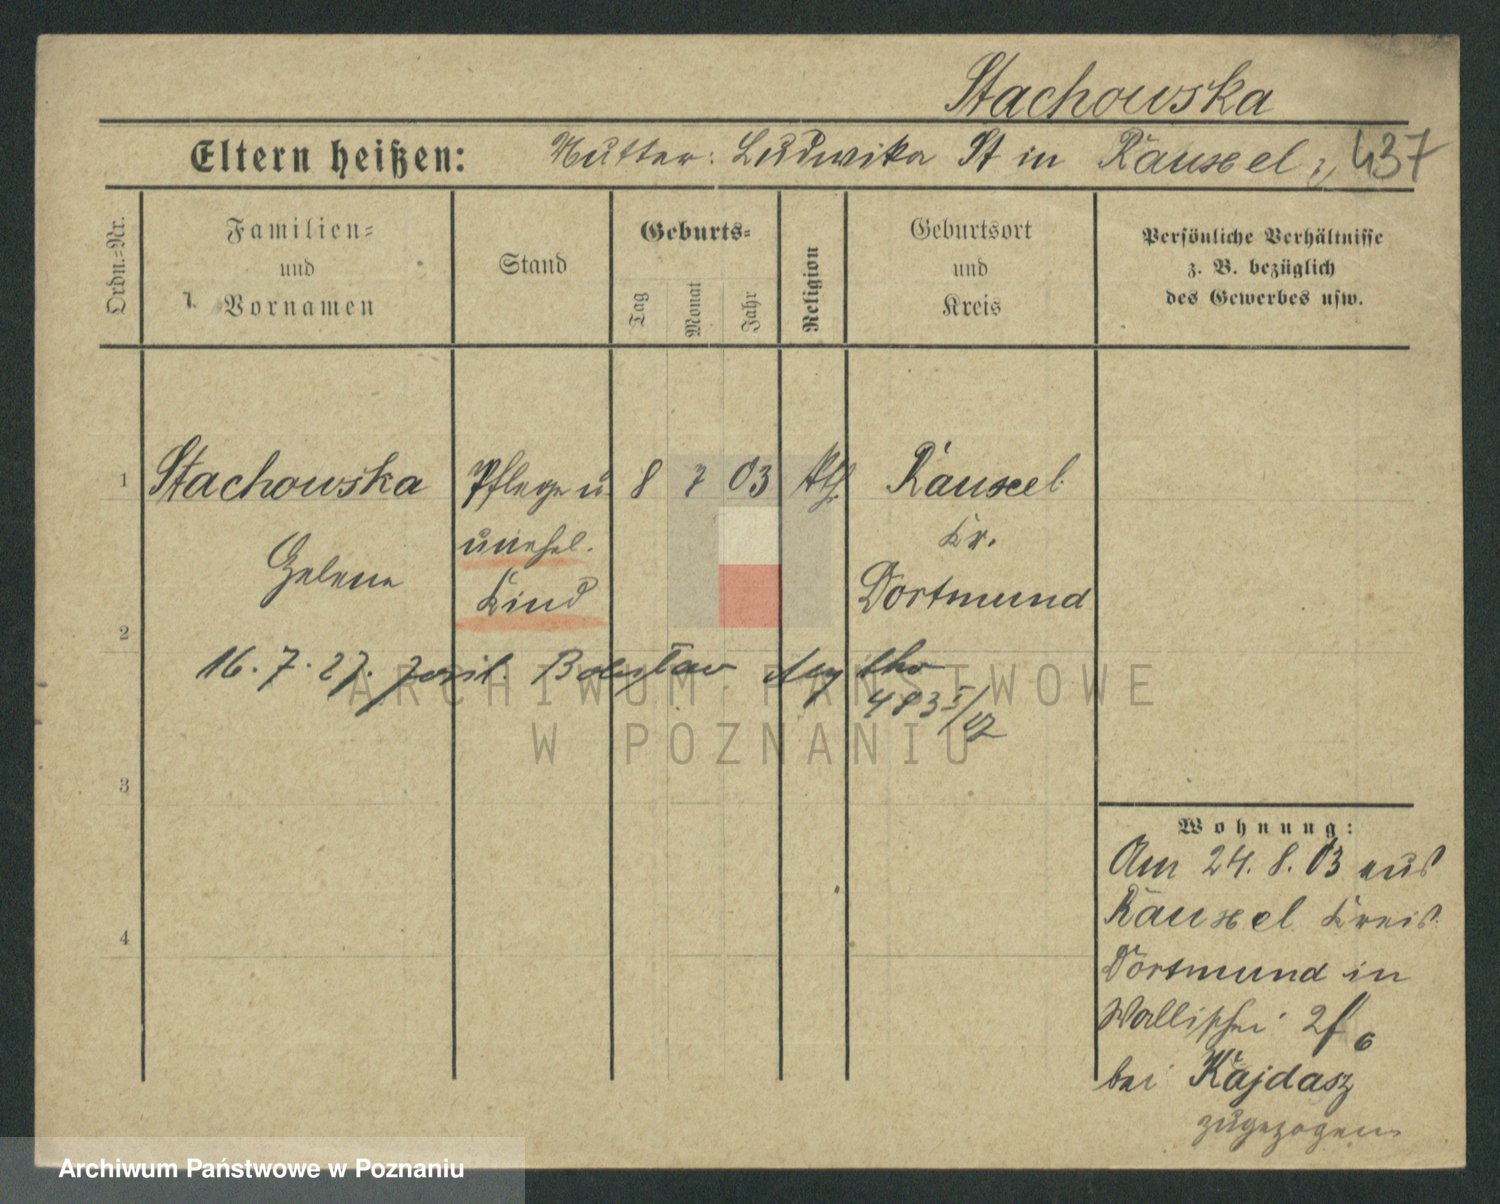 Stachowska
Eltern heißen: Mutter: Ludwika St in Rauxel 437
Ordn.-Nr.
Familien-
und
Vornamen
Stand
Geburts-
Tag
Monat
Jahr
Religion
Geburtsort
und
Kreis
Persönliche Verhältnisse
z. B. bezüglich
des Gewerbes usw.
1 Stachowska Pflege u 8 7 03 kth Rauxel
unehel. Kr.
Helene Kind Dortmund
2
16. 7. 27. Boleslaw
483 I/27
ARCHIWUM PAŃSTWOWE
W POZNANIU
3
4
Wohnung:
Am 24. 8. 03 aus
Rauxel Kreis
Dortmund in
Wallischei 2f 6
bei Kajdasz
zugezogen
Archiwum Państwowe w Poznaniu